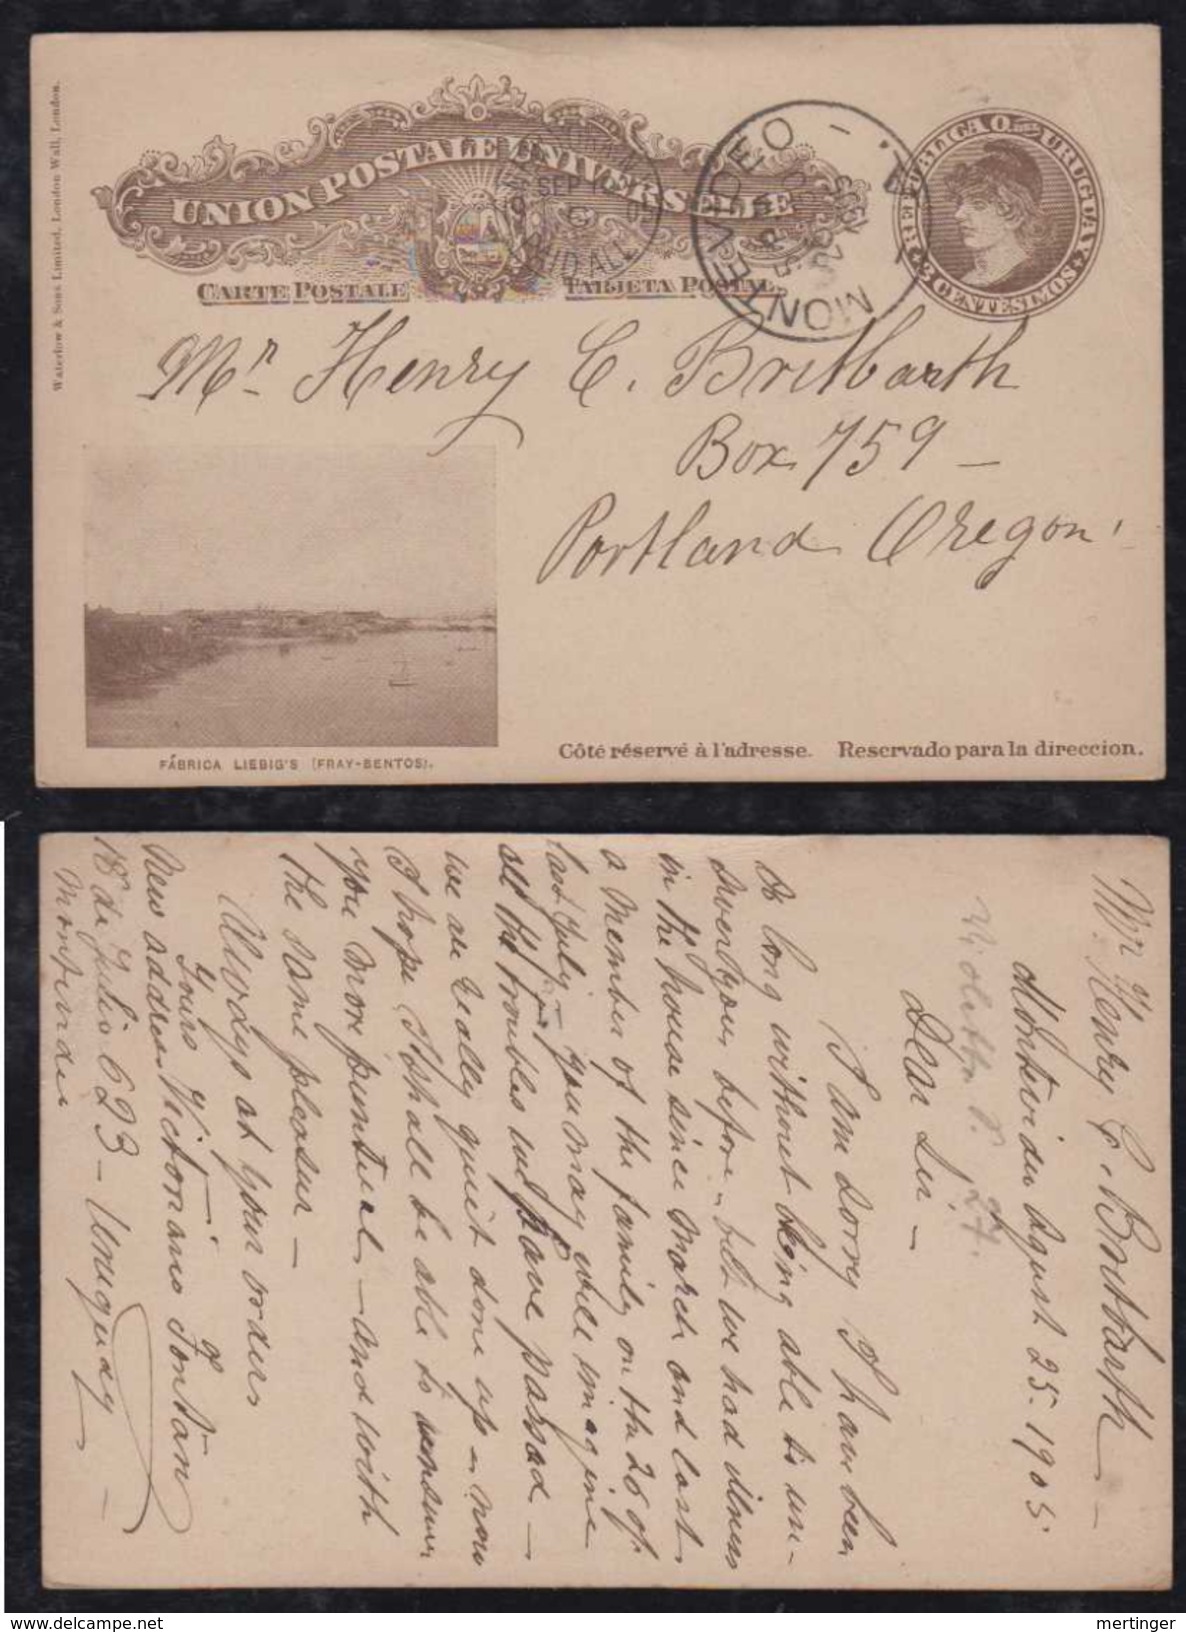 Waterlow & Sons Limited, London Wall, London.
UNION POSTALE UNIVERSELLE
CARTE POSTALE
TARJETA POSTAL.
SEP
PAID ALL
MONTEVIDEO
REPUBLICA O. DEL URUGUAY
CENTESIMOS
Mr. Henry C. Breitbarth
Box 759 –
Portland Oregon
FÁBRICA LIEBIG'S (FRAY-BENTOS).
Côté réservé à l'adresse. Reservado para la direccion.
Mr. Henry C. Breitbarth –
Montevideo August 25 - 1905
Dear Sir –
I am sorry I have been
so long without being able to an-
swer you before – but we had illness
in the house since March and lost
a Member of the family on the 26 of
last July – you may well imagine
all the troubles we have passed –
we are really quiet done up – now
I hope I shall be able to
you more puntual – and with
the same pleasure –
Always at your orders
Yours
New address Victoriano Fontan
18 de Julio 623 – Uruguay –
Montevideo
mertinger